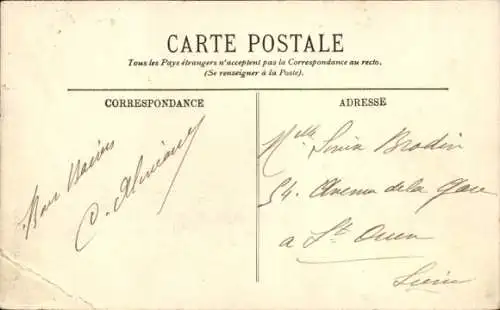 CARTE POSTALE
Tous les Pays étrangers n'acceptent pas la Correspondance au recto.
(Se renseigner à la Poste).
CORRESPONDANCE
ADRESSE
Mlle Brodin
54 Avenue de la Gare
a St Ouen